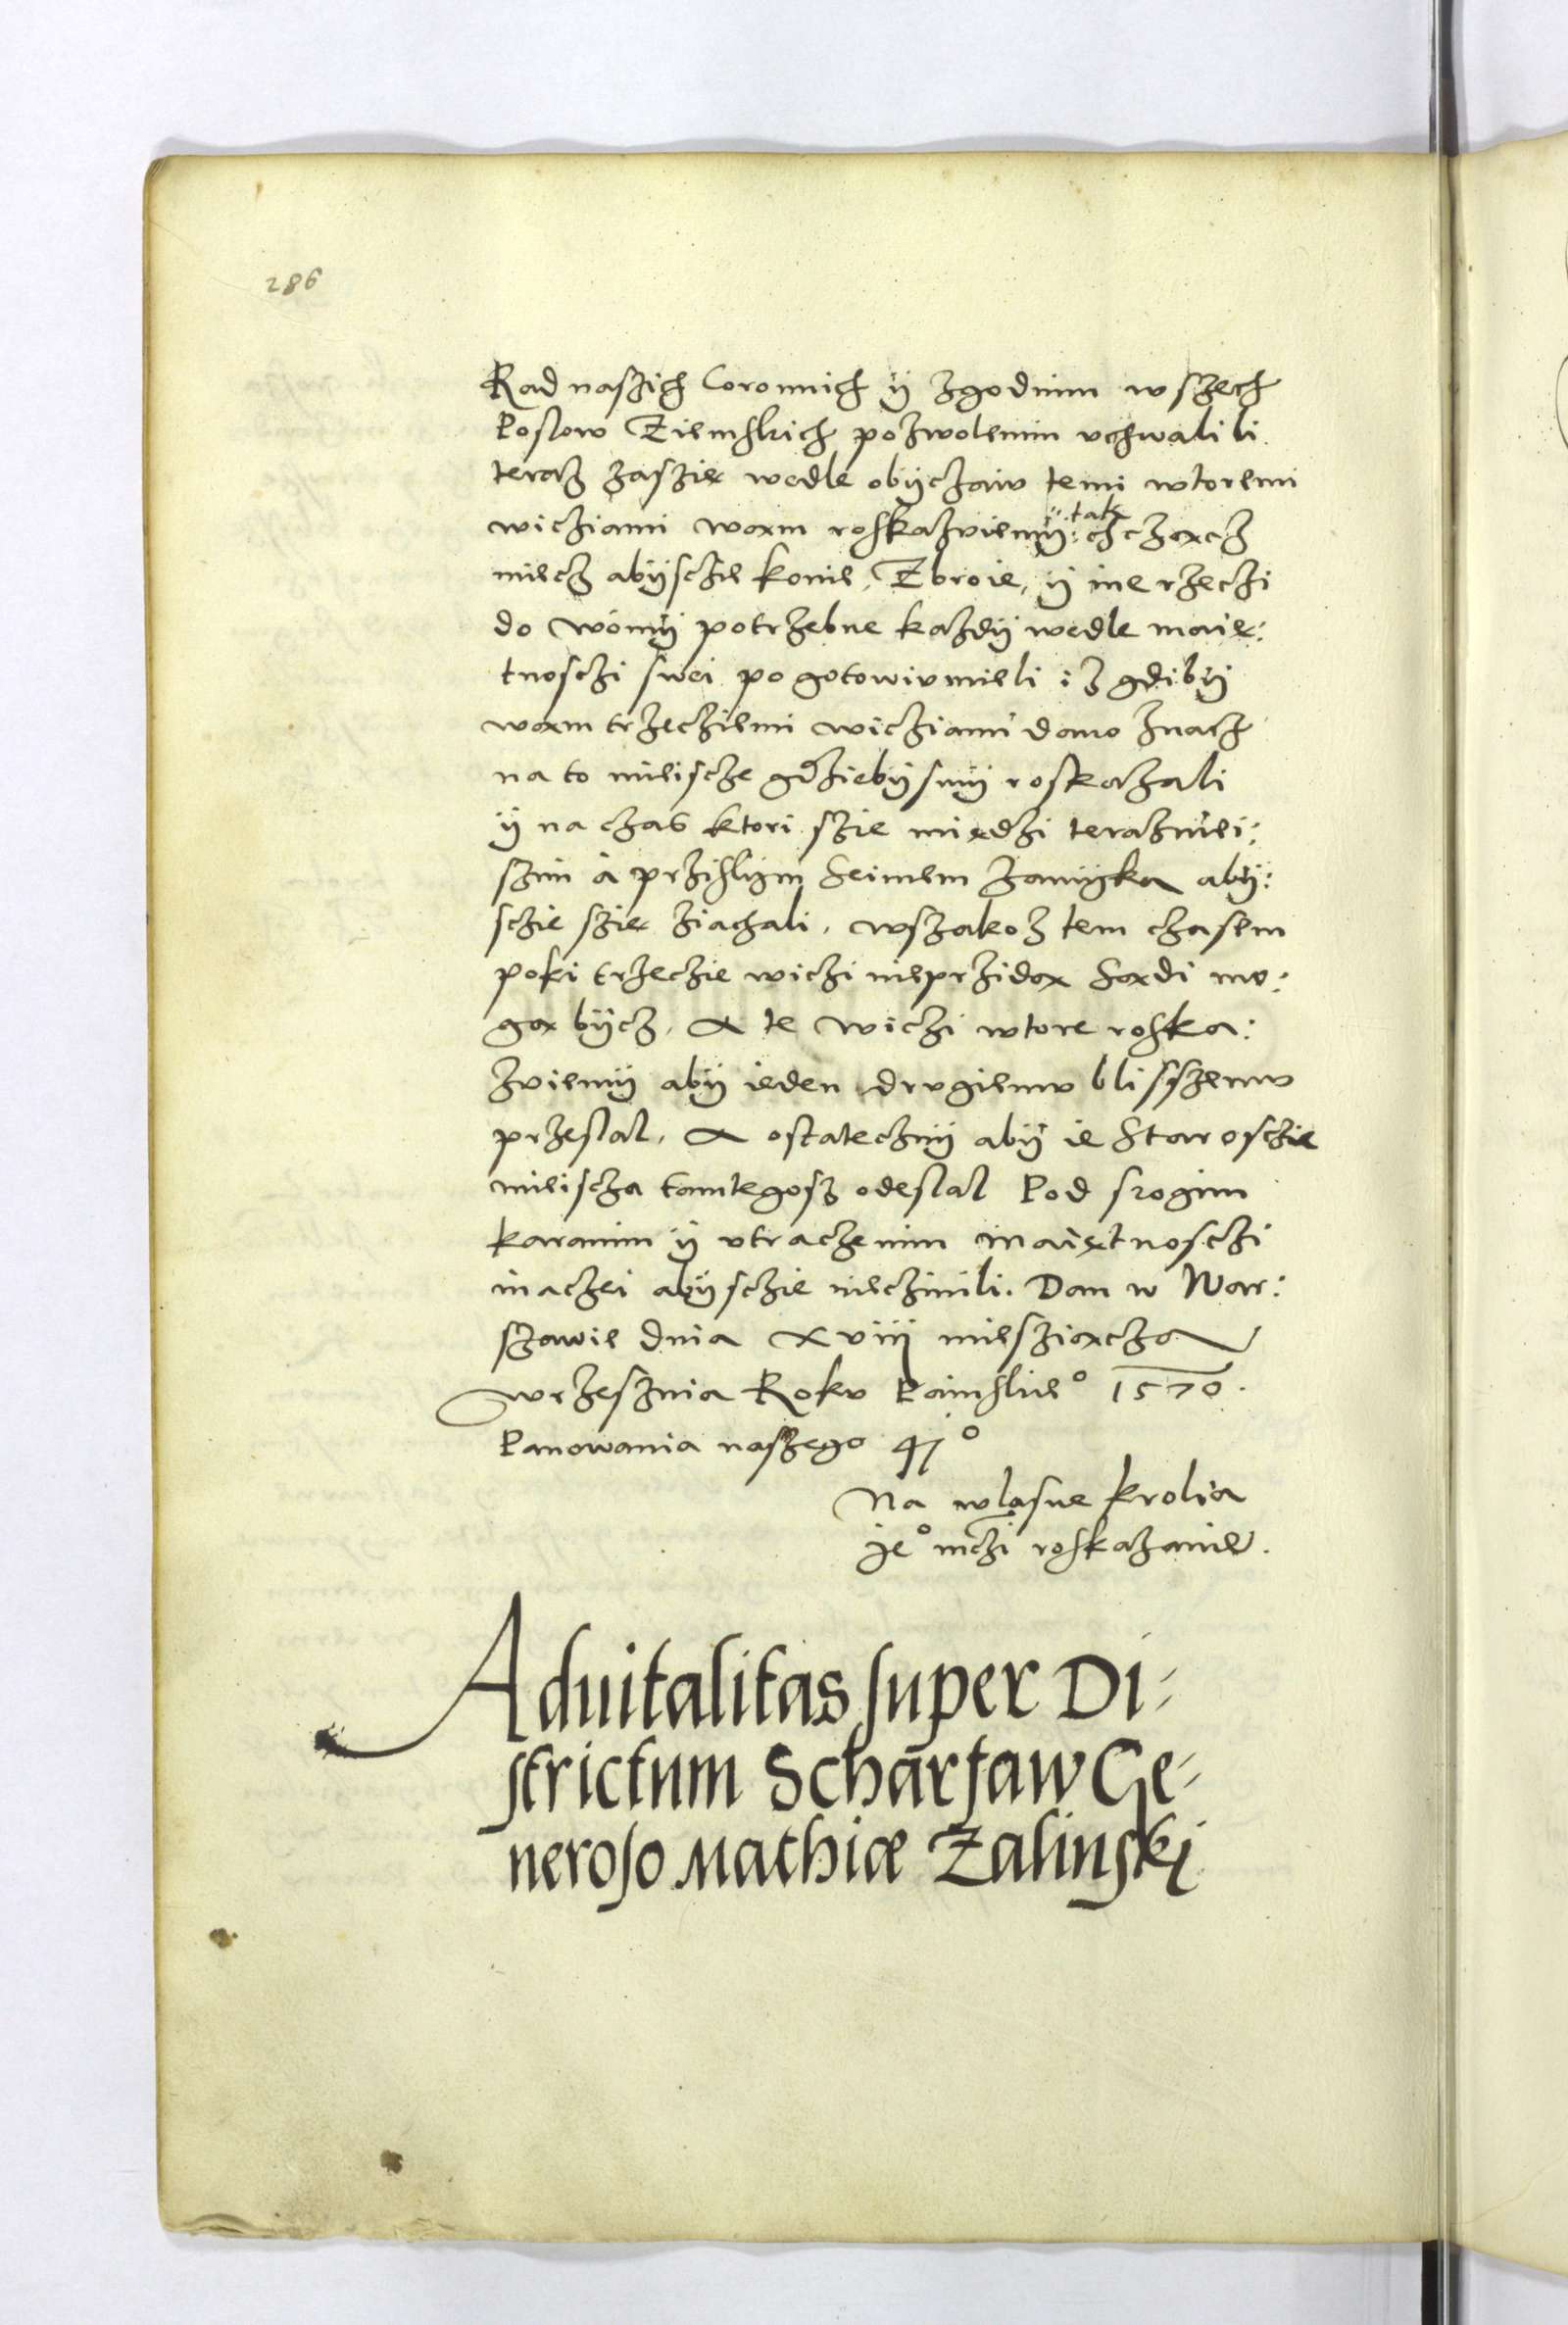 286
Rad naszich Coronnich ÿ zgodnim wszech
Poslow Ziemskich pozwolenim vchwalili
teraz zaszię wedle obÿczaiu temi wtoremi
wicziami wąm roskazuiemÿ: chczącz
ÿ tak
miecz abÿsczie konie, Zbroie, ÿ ine rzeczi
do woinÿ potrzebne każdÿ wedle maię:
tnosczi swei po gotowiu mieli iż gdibÿ
wąm trzecziemi wicziami dano znacz
na to mieiscze gdziebÿsmÿ roskazali
ÿ na czas ktori szie międzi terazniei:
szim á prziszlÿm Seimem zamÿka abÿ:
sczie szię ziachali, wszakoż tem czasem
poki trzeczie wiczi nieprzidą Sądi mo:
gą bÿcz, A te wiczi wtore roska:
zuiemÿ abÿ ieden drugiemu blisszemu
przeslal, A ostatecznÿ abÿ ie Starosczie
mieiscza tamtegosz odeslal Pod srogim
karanim ÿ vtraczenim maiętnosczi
inaczei abÿsczie nieczinili. Dan w War:
szawie dnia xviij miesziącza
wrzesznia Roku Paińskie° 1570.
Panowania naszego 41°
Na wlasne krolia
Je° mczi roskazanie.
Aduitalitas super Di-
strictum Scharfaw Ge-
neroso Mathiæ Zalinski